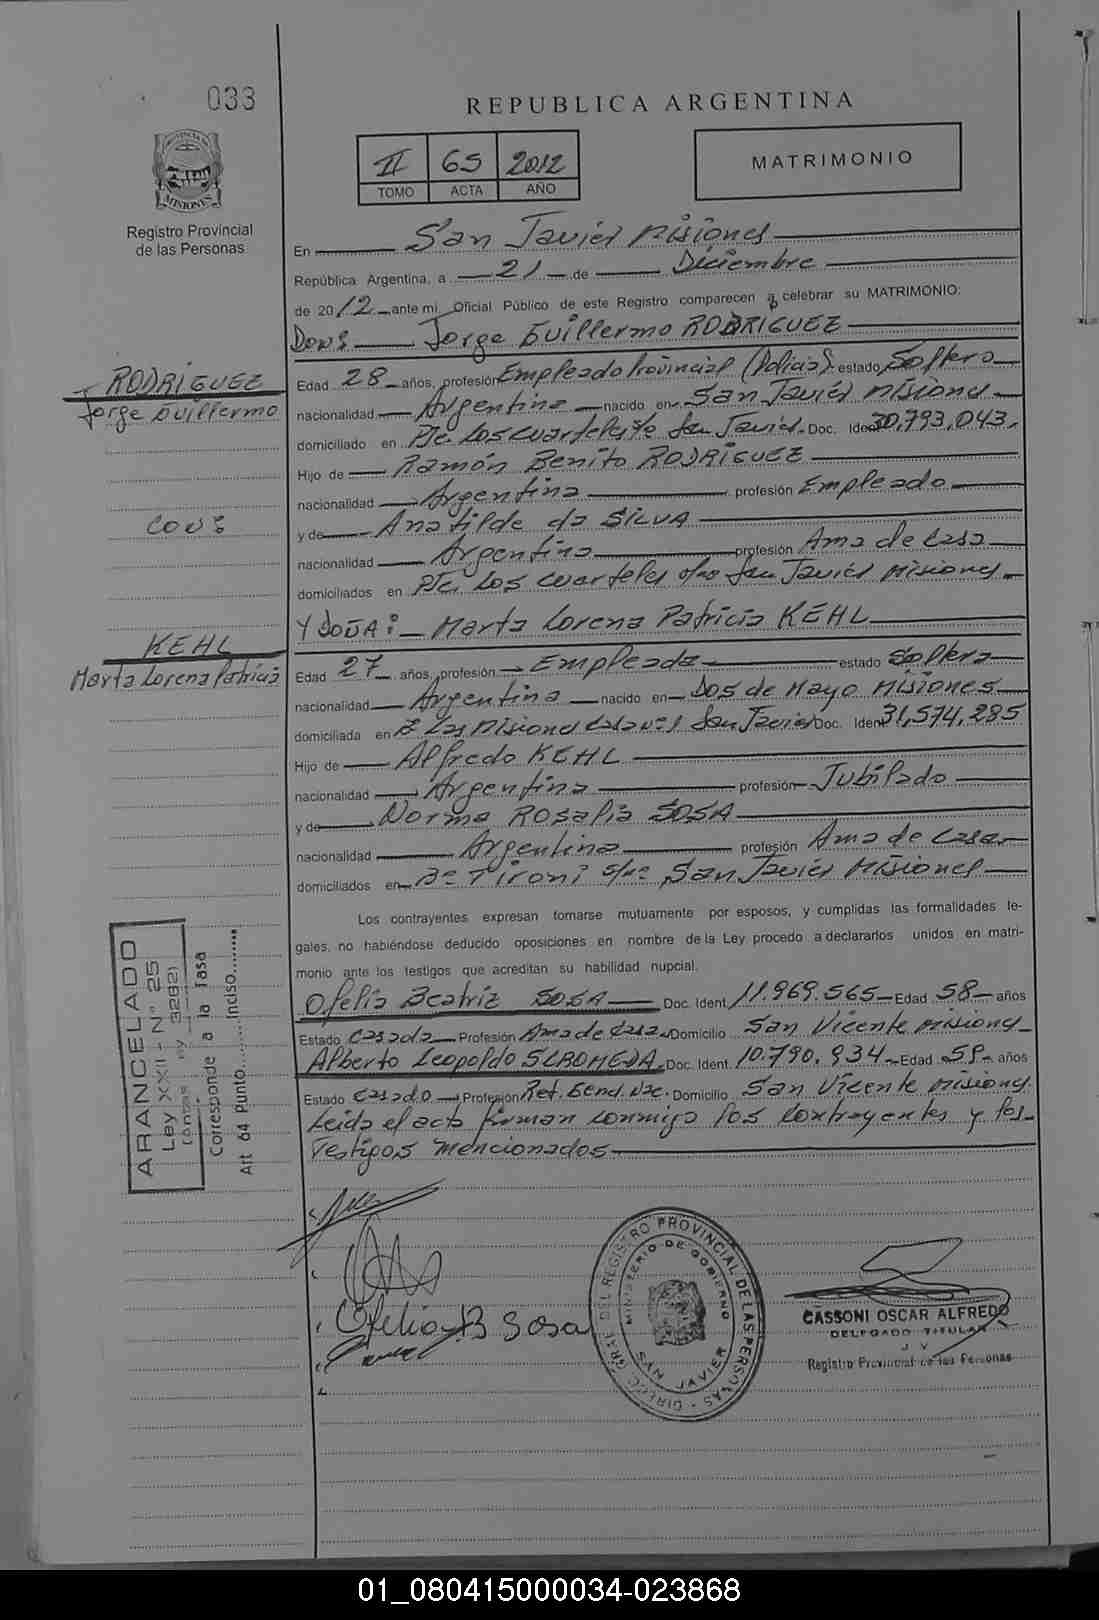 033
REPUBLICA ARGENTINA
II 65 2012
TOMO ACTA AÑO
MATRIMONIO
PROVINCIA DE
MISIONES
Registro Provincial
de las Personas
En San Javier Misiones
República Argentina, a 21 de Diciembre
de 2012 ante mi, Oficial Público de este Registro comparecen a celebrar su MATRIMONIO:
Don: Jorge Guillermo RODRIGUEZ
RODRIGUEZ
Jorge Guillermo
Edad 28 años, profesión Empleado Provincial (Policia) estado Soltero
nacionalidad Argentina nacido en San Javier Misiones
domiciliado en Los Cuarteles San Javier Doc. Ident 30.793.043
Hijo de Ramón Benito RODRIGUEZ
nacionalidad Argentina profesión Empleado
CON:
y de Anatilde da SILVA
nacionalidad Argentina profesión Ama de Casa
domiciliados en Los Cuarteles San Javier Misiones
Y DOÑA: Marta Lorena Patricia KEHL
KEHL
Marta Lorena Patricia
Edad 27 años, profesión Empleada estado Soltera
nacionalidad Argentina nacido en Dos de Mayo Misiones
domiciliada en San Javier Doc. Ident 31.574.285
Hijo de Alfredo KEHL
nacionalidad Argentina profesión Jubilado
y de Norma Rosalia SOSA
nacionalidad Argentina profesión Ama de Casa
domiciliados en Bº Tironi s/nº San Javier Misiones
Los contrayentes expresan tomarse mutuamente por esposos, y cumplidas las formalidades le-
gales, no habiéndose deducido oposiciones en nombre de la Ley procedo a declararlos unidos en matri-
monio ante los testigos que acreditan su habilidad nupcial.
Ofelia Beatriz SOSA Doc. Ident. 11.969.565 Edad 58 años
Estado Casada Profesión Ama de Casa Domicilio San Vicente Misiones
Alberto Leopoldo Doc. Ident. 10.790.934 Edad 59 años
Estado Casado Profesión Ret. Gend. Nac. Domicilio San Vicente Misiones
Leida el acta firman conmigo los contrayentes y los
Testigos mencionados
ARANCELADO
Ley XXII - Nº 25
(antes Ley 3282)
Corresponde a la Tasa
Art 64 Punto......... Inciso........
Ofelia B Sosa
DIRECC. GRAL. DEL REGISTRO PROVINCIAL DE LAS PERSONAS
MINISTERIO DE GOBIERNO
SAN JAVIER
CASSONI OSCAR ALFREDO
DELEGADO TITULAR
Registro Provincial de las Personas
01_080415000034-023868